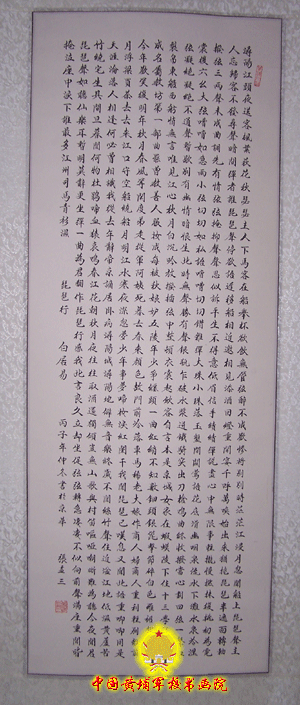 潯陽江頭夜送客楓葉荻花秋瑟瑟主人下馬客在船舉杯欲飲無管弦醉不成歡慘將別別時茫茫江浸月忽聞水上琵琶聲主
人忘歸客不發尋聲暗問彈者誰琵琶聲停欲語遲移船相近邀相見添酒回燈重開宴千呼萬喚始出來猶抱琵琶半遮面轉軸
撥弦三兩聲未成曲調先有情弦弦掩抑聲聲思似訴平生不得志低眉信手續續彈說盡心中無限事輕攏慢撚抹復挑初為霓
裳後六幺大弦嘈嘈如急雨小弦切切如私語嘈嘈切切錯雜彈大珠小珠落玉盤間關鶯語花底滑幽咽泉流水下灘水泉冷澀
弦凝絕凝絕不通聲暫歇別有幽情暗恨生此時無聲勝有聲銀瓶乍破水漿迸鐵騎突出刀槍鳴曲終收撥當心畫四弦一聲如
裂帛東船西舫悄無言唯見江心秋月白沉吟放撥插弦中整頓衣裳起斂容自言本是京城女家在蝦蟆陵下住十三學得琵琶
成名屬教坊第一部曲罷曾教善才服妝成每被秋娘妒五陵年少爭纏頭一曲紅綃不知數鈿頭銀篦擊節碎血色羅裙翻酒污
今年歡笑復明年秋月春風等閒度弟走從軍阿姨死暮去朝來顏色故門前冷落車馬稀老大嫁作商人婦商人重利輕別離前
月浮梁買茶去去來江口守空船繞船月明江水寒夜深忽夢少年事夢啼妝淚紅闌干我聞琵琶已嘆息又聞此語重唧唧同是
天涯淪落人相逢何必曾相識我從去年辭帝京謫居臥病潯陽城潯陽地僻無音樂終歲不聞絲竹聲住近湓江地低濕黃蘆苦
竹繞宅生其間旦暮聞何物杜鵑啼血猿哀鳴春江花朝秋月夜往往取酒還獨傾豈無山歌與村笛嘔啞嘲哳難為聽今夜聞君
琵琶語如聽仙樂耳暫明莫辭更坐彈一曲為君翻作琵琶行感我此言良久立卻坐促弦弦轉急淒淒不似向前聲滿座重聞皆
掩泣座中泣下誰最多江州司馬青衫濕
琵琶行 白居易 丙子年仲冬書於京華 張孟三
中国黄埔军校书画院